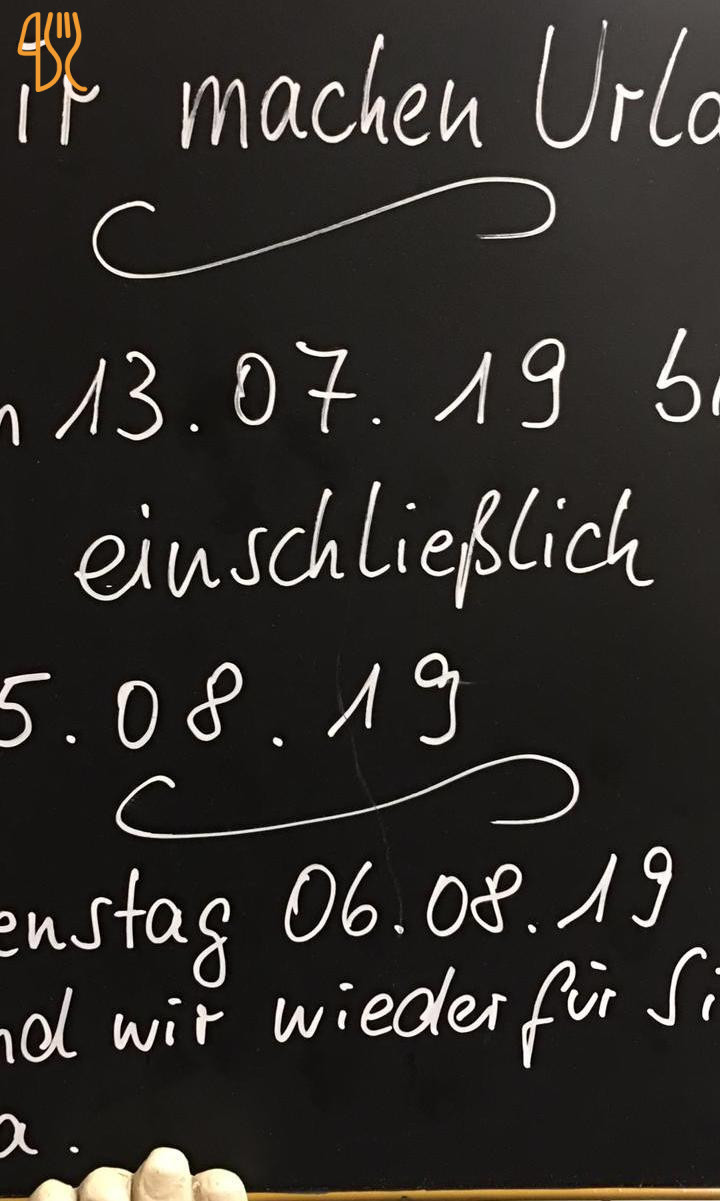 ir machen Urla
n 13.07.19 bi
einschließlich
5.08.19
enstag 06.08.19
nd wir wieder für Si
a.